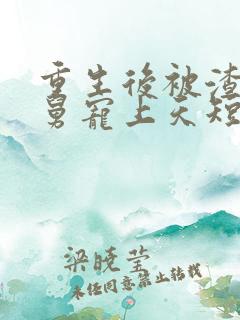 重生後被渣
舅寵上天短
梁曉瑩
未经同意禁止转载